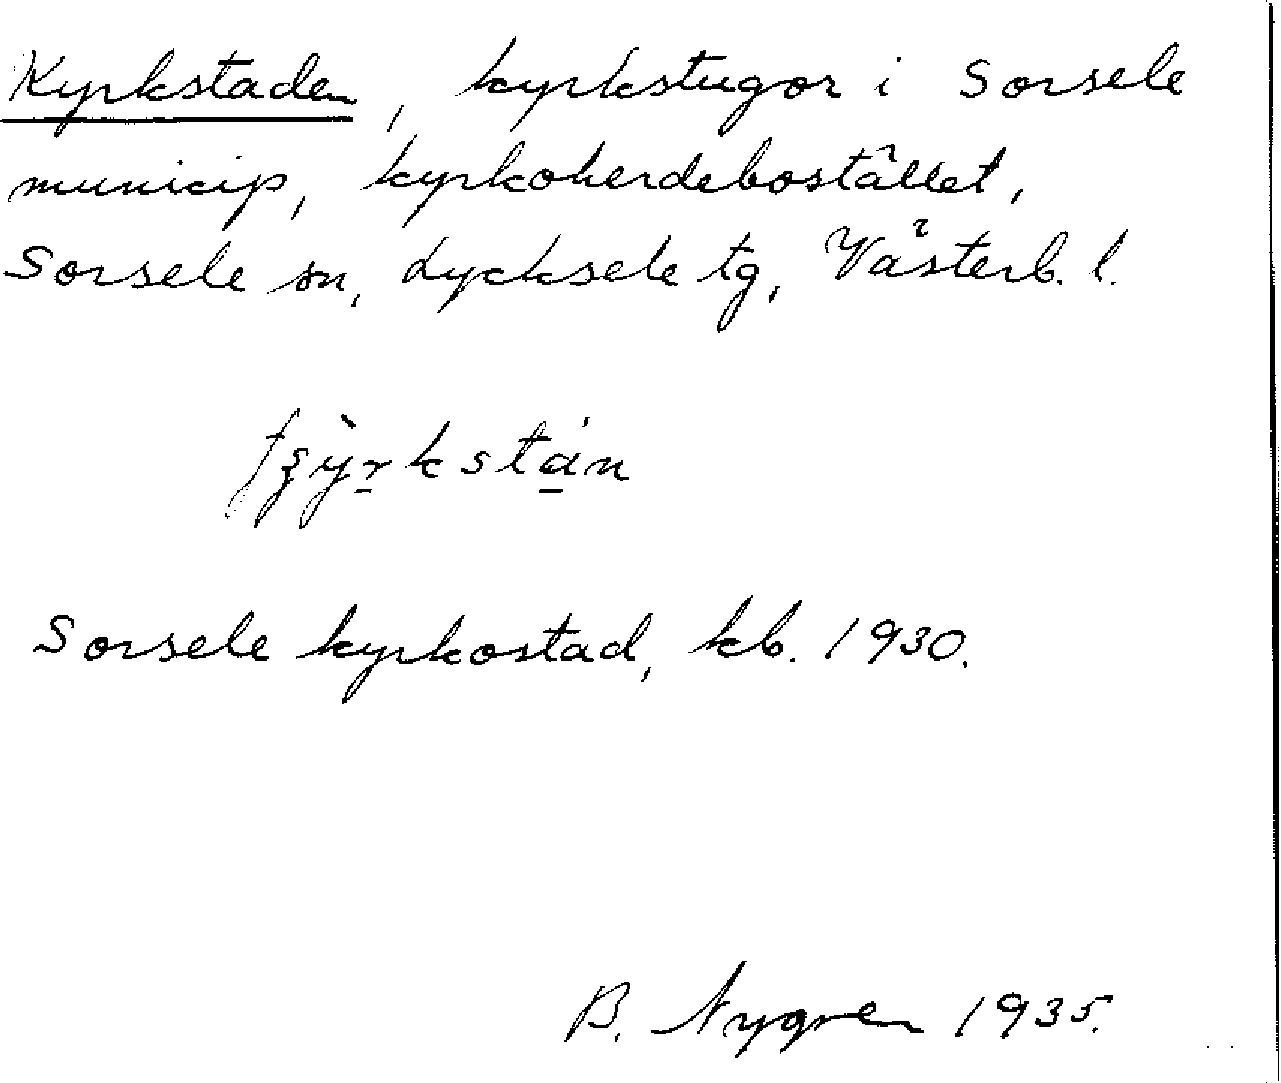 Kyrkstaden, kyrkstugor i Sorsele
municip, kyrkoherdebostället,
Sorsele sn, Lycksele tg, Västerb. l.
Sorsele kyrkostad, kb. 1930.
B. Nygren 1935.